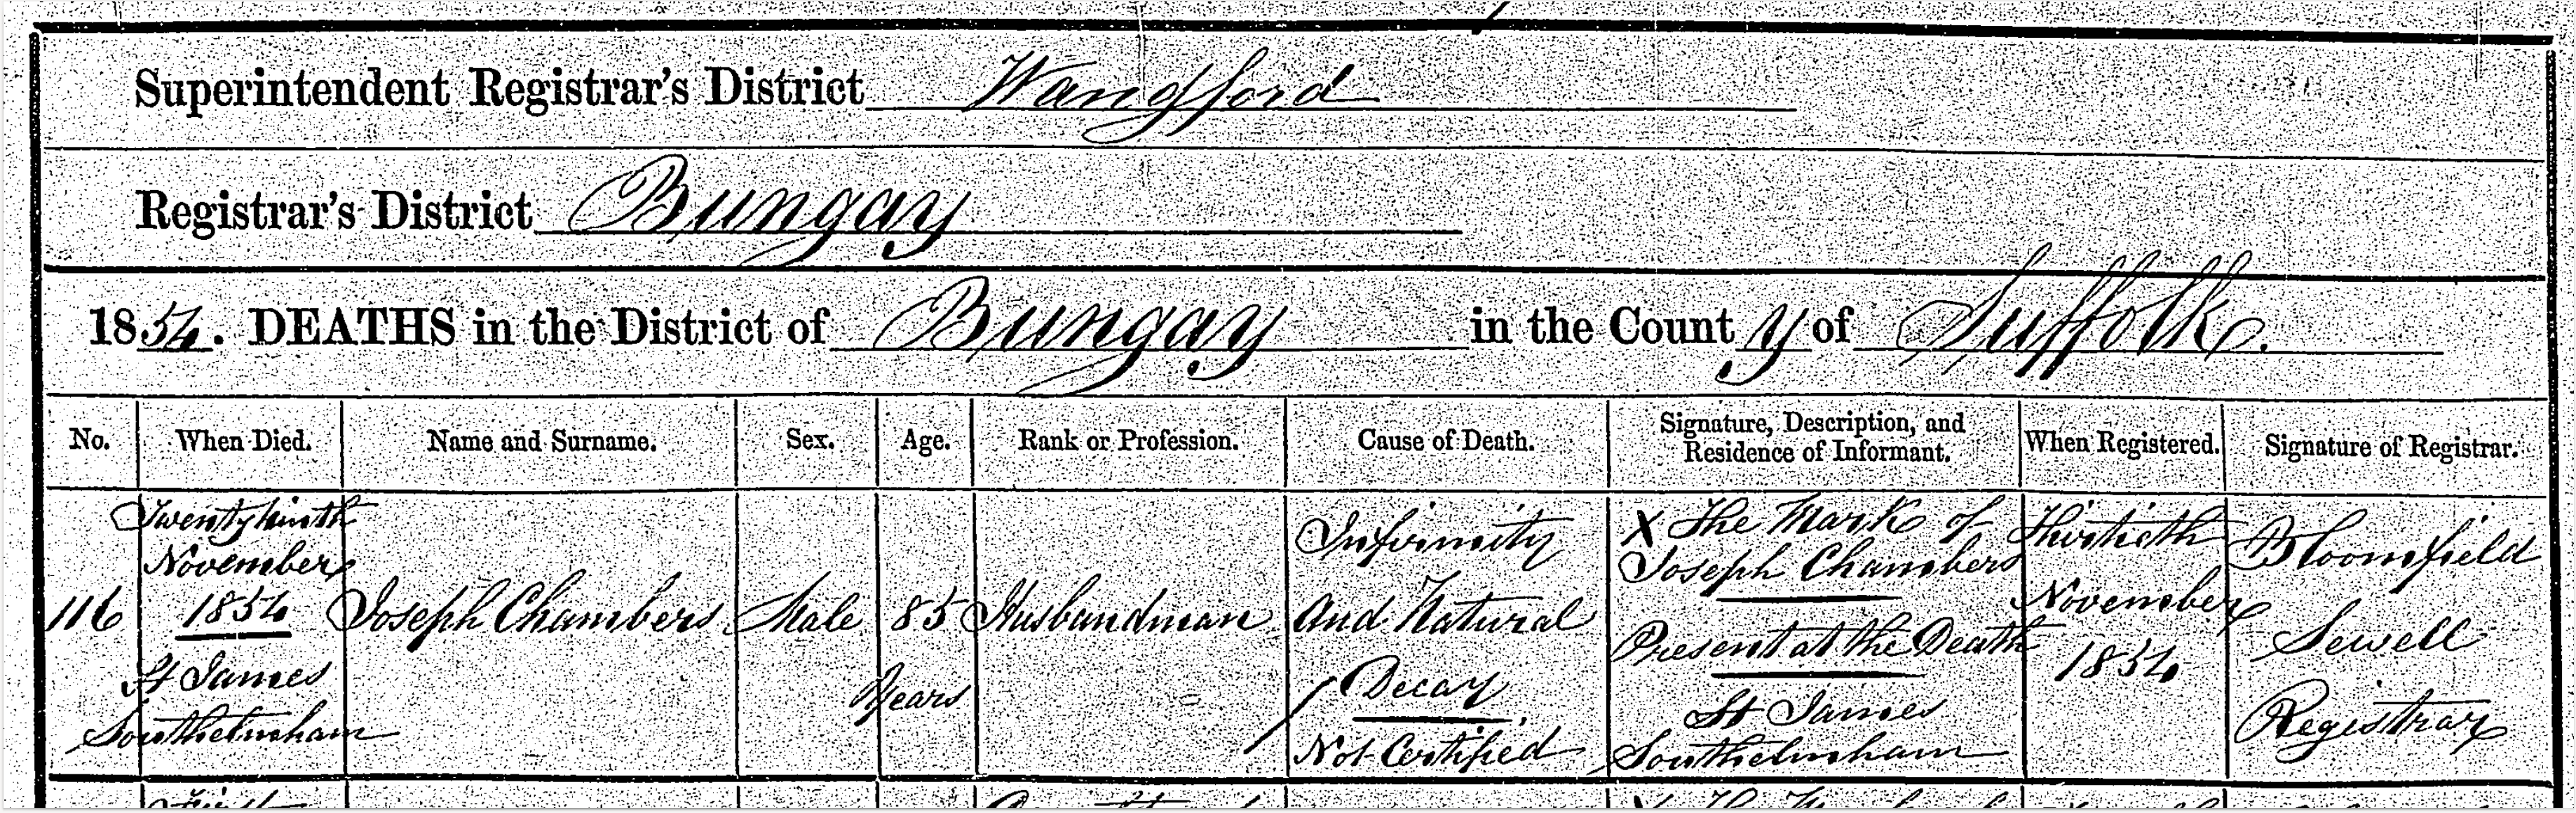 Superintendent Registrar's District Wangford
Registrar's District Bungay
1854. DEATHS in the District of Bungay in the County of Suffolk.
No. When Died. Name and Surname. Sex. Age. Rank or Profession. Cause of Death. Signature, Description, and Residence of Informant. When Registered. Signature of Registrar.
116
Twenty ninth
November
1854
St James
Southelmham
Joseph Chambers
Male
85
Years
Husbandman
Infirmity
and Natural
Decay
Not Certified
X The Mark of
Joseph Chambers
Present at the Death
St James
Southelmham
Thirtieth
November
1854
Bloomfield
Sewell
Registrar